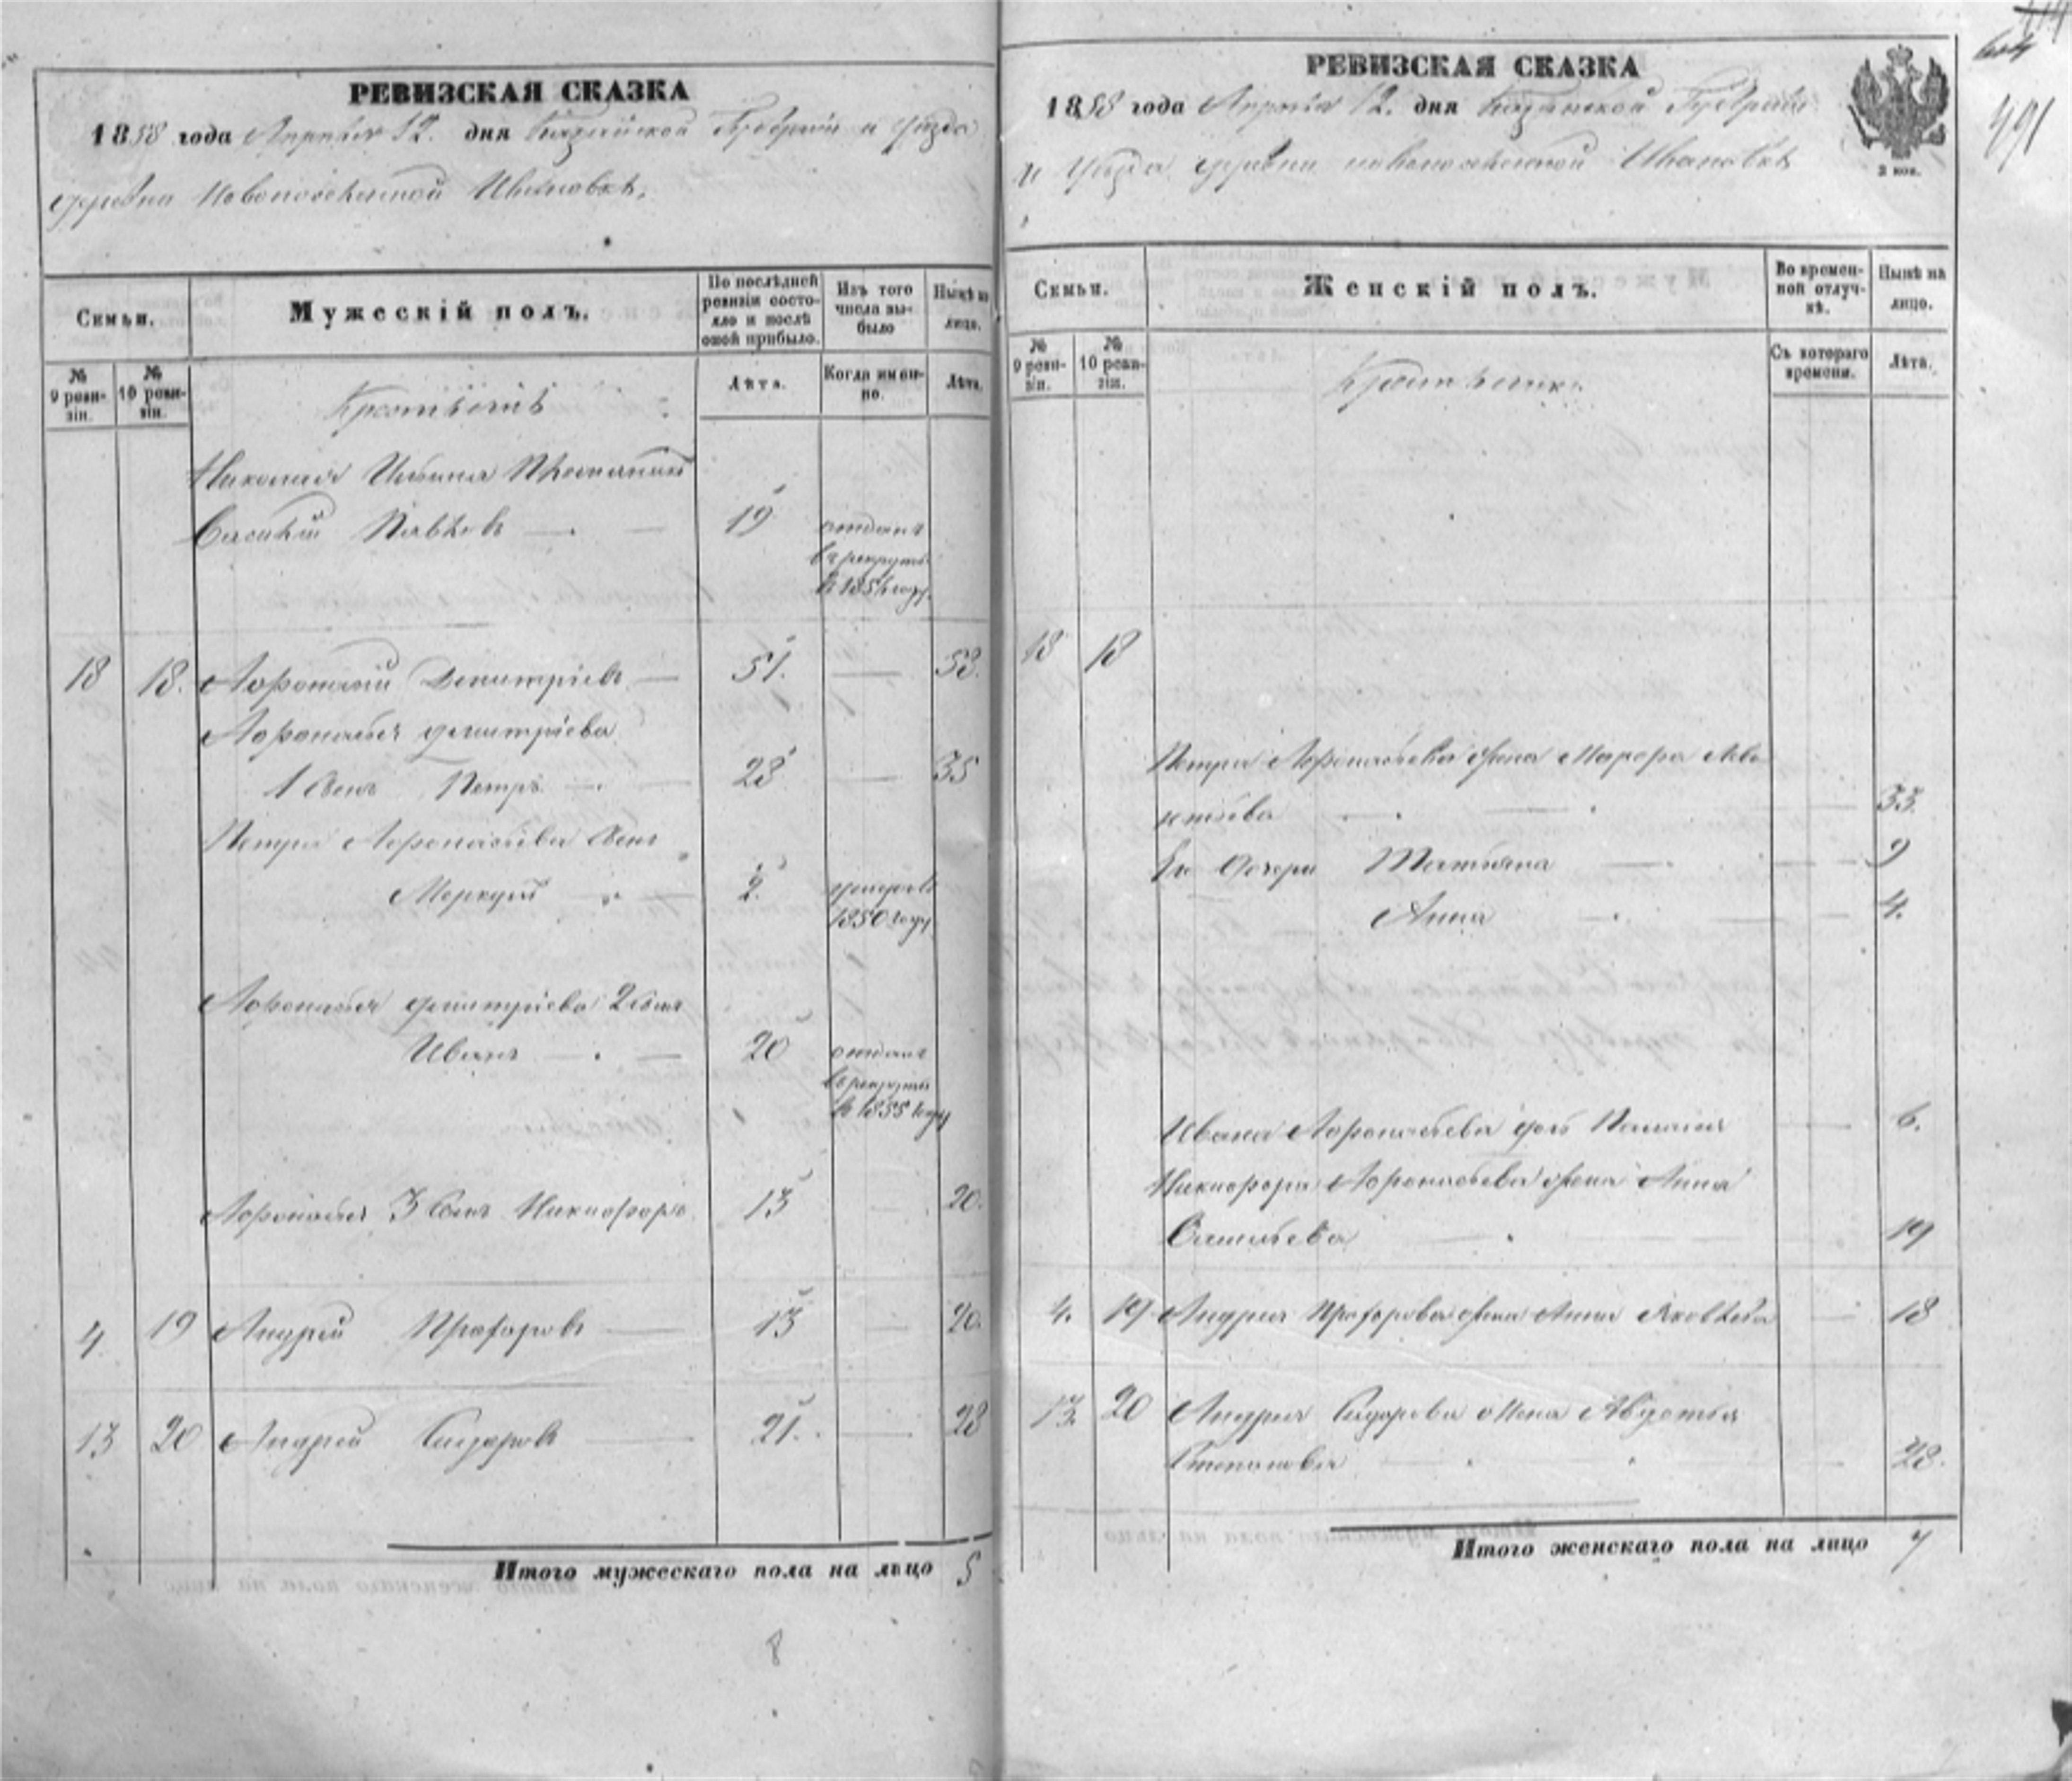 РЕВИЗСКАЯ СКАЗКА
1858 года Апреля 12. дня Казанской Губернии и Уезда
деревни Новопоселенной Ивановки.
Семьи.
Мужескій полъ.
По послѣдней ревизіи состояло и послѣ оной прибыло.
Изъ того числа выбыло
Нынѣ на лицо.
№ 9 ревизіи.
№ 10 ревизіи.
Лѣта.
Когда именно.
Лѣта.
Крестьянъ
Николая Иванова
Василій 19 отданъ
въ рекруты
18 18. Афонасій Дмитріевъ 51. 53.
Афонасья Дмитріева
1 сынъ Петръ 28 35
Петра Афонасьева сынъ
Меркурій 2. умеръ въ
1850 году
Афонасья Дмитріева 2 сынъ
Иванъ 20 отданъ
въ рекруты
въ 1855 году
Афонасья 3 сынъ Никифоръ 13 20.
4 19 Андрей Прохоровъ 13 20.
13 20 Андрей Сидоровъ 21. 28
Итого мужескаго пола на лицо 5
8
РЕВИЗСКАЯ СКАЗКА
1858 года Апреля 12. дня Казанской Губерніи
и Уезда деревни новопоселенной Ивановки
2 коп.
491
Семьи.
Женскій полъ.
Во временной отлучкѣ.
Нынѣ на лицо.
№ 9 ревизіи.
№ 10 ревизіи.
Съ котораго времени.
Лѣта.
18 18
Петра Афонасьева жена Марфа
33.
Ея дочери Татьяна 9
Анна 4.
Ивана Афонасьева дочь 6.
Никифора Афонасьева жена Анна
Васильева 19
4. 19 Андрея Прохорова жена Анна Яковлева 18
13. 20 Андрея Сидорова жена Авдотья
Степанова 28.
Итого женскаго пола на лицо 7